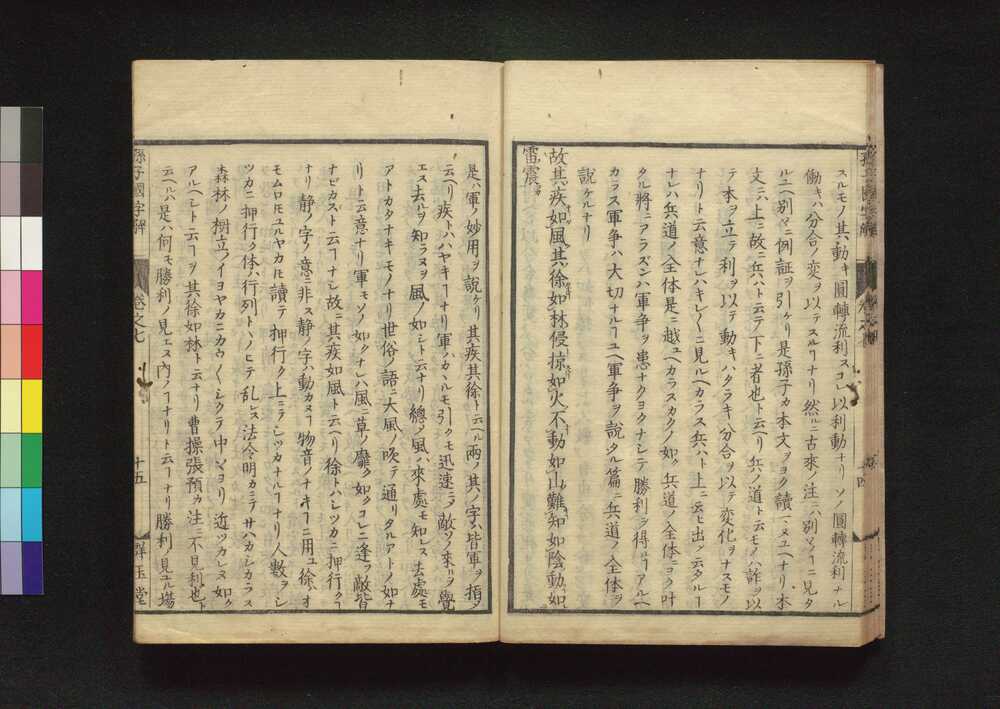 スルモノ其動キ圓轉流利スコレ以利動ナリソノ圓轉流利ナル
働キハ分合ノ変ヲ以テスルヿナリ然ルニ古來ノ注ニハ別〻ニ見タ
ルユヘ別〻ニ例証ヲ引ケリ是孫子カ本文ヲヨク讀マヌユヘナリ本
文ニハ上ニ故ニ兵ハト云テ下ニ者也ト云ヘリ兵ノ道ト云モノハ詐ヲ以
テ本ヲ立テ利ヲ以テ動キハタラキ分合ヲ以テ変化ヲナスモノ
ナリト云意ナレハキレ〱ニ見ルヘカラス兵ハト上ニ云ヒ出シタルヿ
ナレハ兵道ノ全体是ニ越ユヘカラスカクノ如ク兵道ノ全体ニヨク叶
タル將ニアラズンハ軍争ヲ患ナクヨクナシテ勝利ヲ得ヿアルヘ
カラス軍争ハ大切ナルヿユヘ軍争ヲ說タル篇ニ兵道ノ全体ヲ
說ケルナリ
故其疾如風其徐如林侵掠如火不動如山難知如陰動如
雷震
是ハ軍ノ妙用ヲ說ケリ其疾其徐ト云ヘル兩ノ其ノ字ハ皆軍ヲ指シ
云ヘリ疾トハハヤキヿナリ軍ノカヽルモ引クモ迅速ニシテ敵ソノ來ルヲ覺
エス去ルヲ知ラヌヲ風ノ如シト云ナリ總シテ風ハ來處モ知レス去處モ
アトカタナキモノナリ世俗ノ語ニ大風ノ吹テ通リタルアトノ如ナ
リト云意ナリ軍モソノ如クナレハ風ニ草ノ靡ク如クコレニ逢フ敵皆
ナビカスト云ヿナシ故ニ其疾如風ト云ヘリ徐トハシツカニ押行クヿ
ナリ靜ノ字ノ意ニ非ス靜ノ字ハ動カヌヿ物音ノナキヿニ用ユ徐ハオ
モムロトモユルヤカトモ讀テ押行ク上ニテシツカナルヿナリ人數ヲシ
ツカニ押行ク体ハ行列トヽノヒテ乱レス法令明カニテサハカシカラス
森林ノ樹立ノイヨヤカニカウ〱シクテ中ソヨリ近ツカレヌ如ク
アルヘシト云ヿヲ其徐如林ト云ナリ曹操張預カ注ニ不見利也ト
云ヘルハ是ハ何モ勝利ノ見エス內ノヿナリト云ヿナリ勝利ノ見エル場
孫子國字解
卷之七
十五
群玉堂